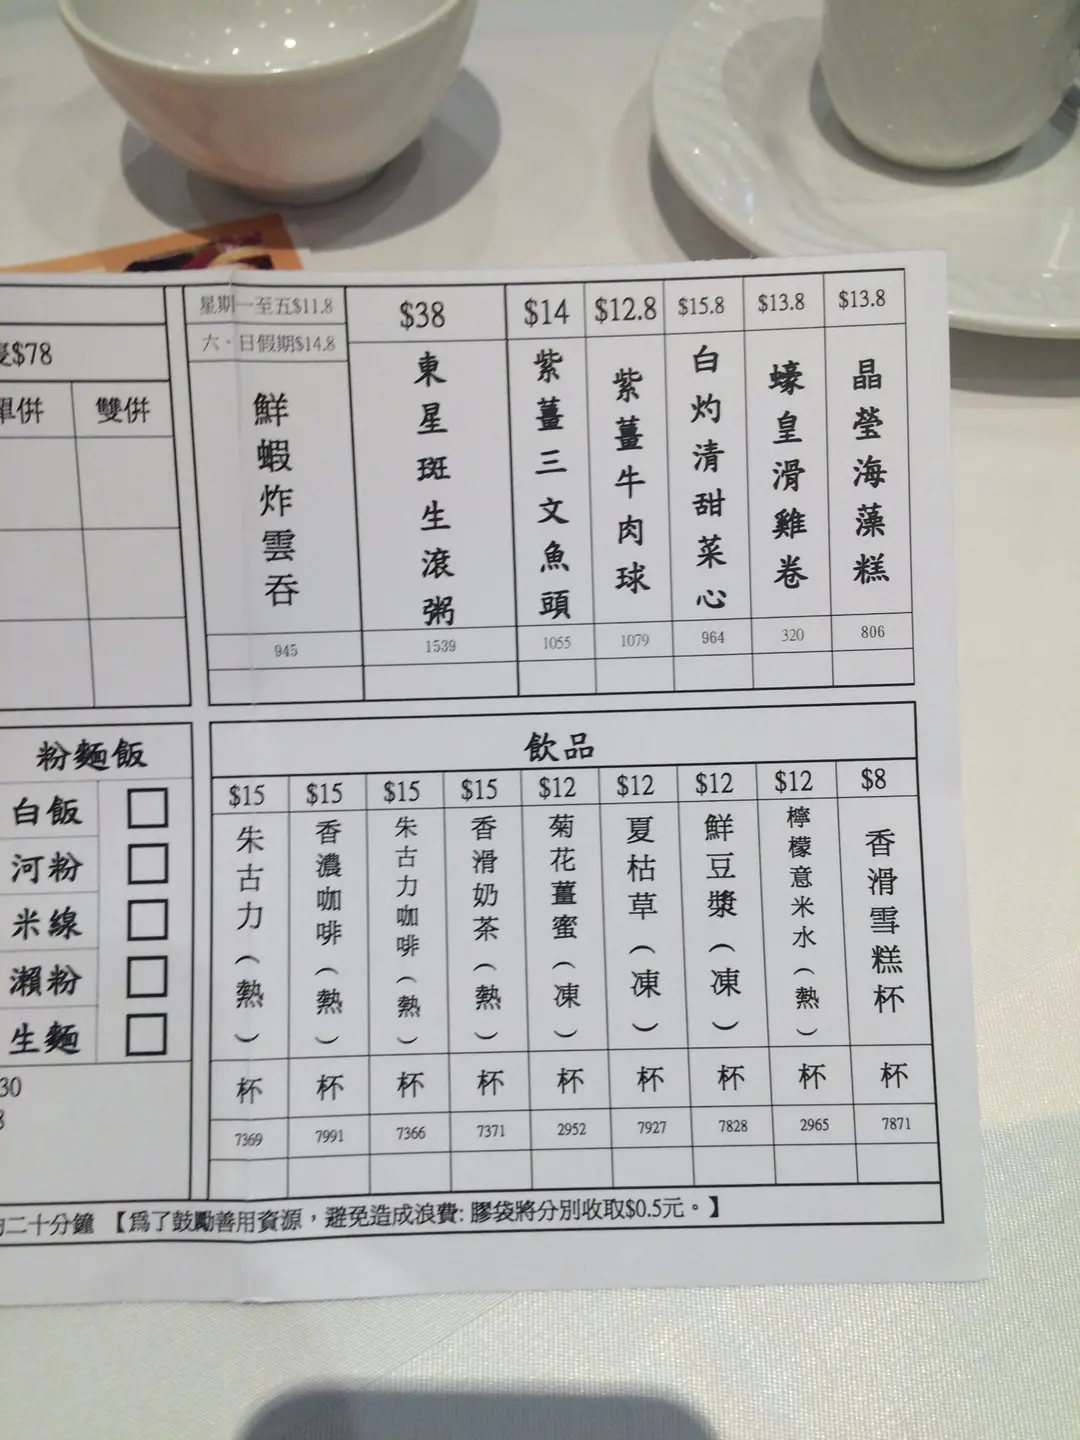 $78
單併
雙併
星期一至五$11.8
六、日假期$14.8
鮮蝦炸雲吞
945
$38
東星斑生滾粥
1539
$14
紫薑三文魚頭
1055
$12.8
紫薑牛肉球
1079
$15.8
白灼清甜菜心
964
$13.8
蠔皇滑雞卷
320
$13.8
晶瑩海藻糕
806
粉麵飯
白飯
河粉
米線
瀨粉
生麵
30
飲品
$15
朱古力(熱)
杯
7369
$15
香濃咖啡(熱)
杯
7991
$15
朱古力咖啡(熱)
杯
7366
$15
香滑奶茶(熱)
杯
7371
$12
菊花薑蜜(凍)
杯
2952
$12
夏枯草(凍)
杯
7927
$12
鮮豆漿(凍)
杯
7828
$12
檸檬意米水(熱)
杯
2965
$8
香滑雪糕杯
杯
7871
二十分鐘【爲了鼓勵善用資源，避免造成浪費: 膠袋將分別收取$0.5元。】